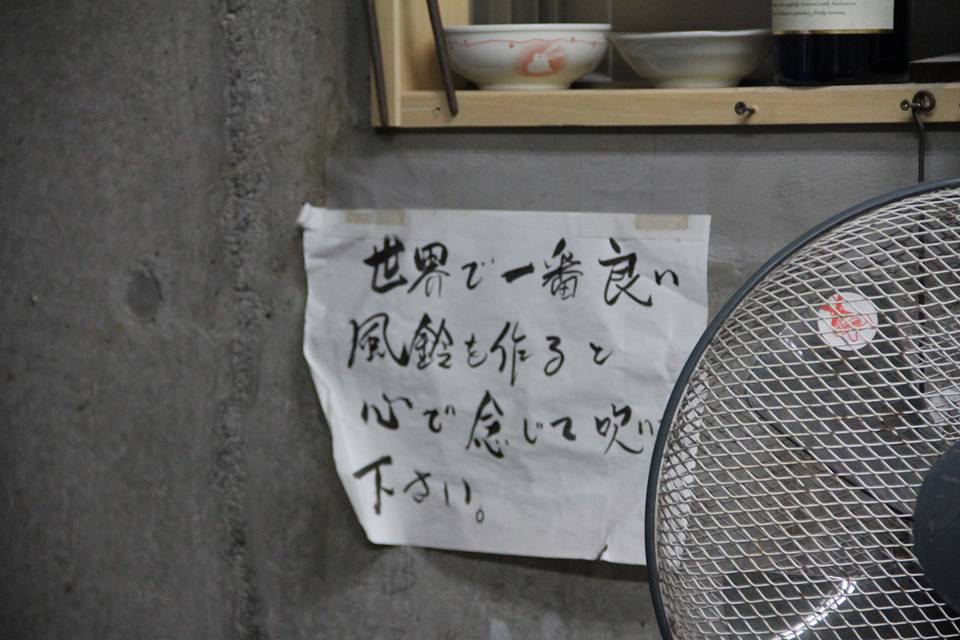 世界で一番良い
風鈴を作ると
心で念じて吹い
下さい。